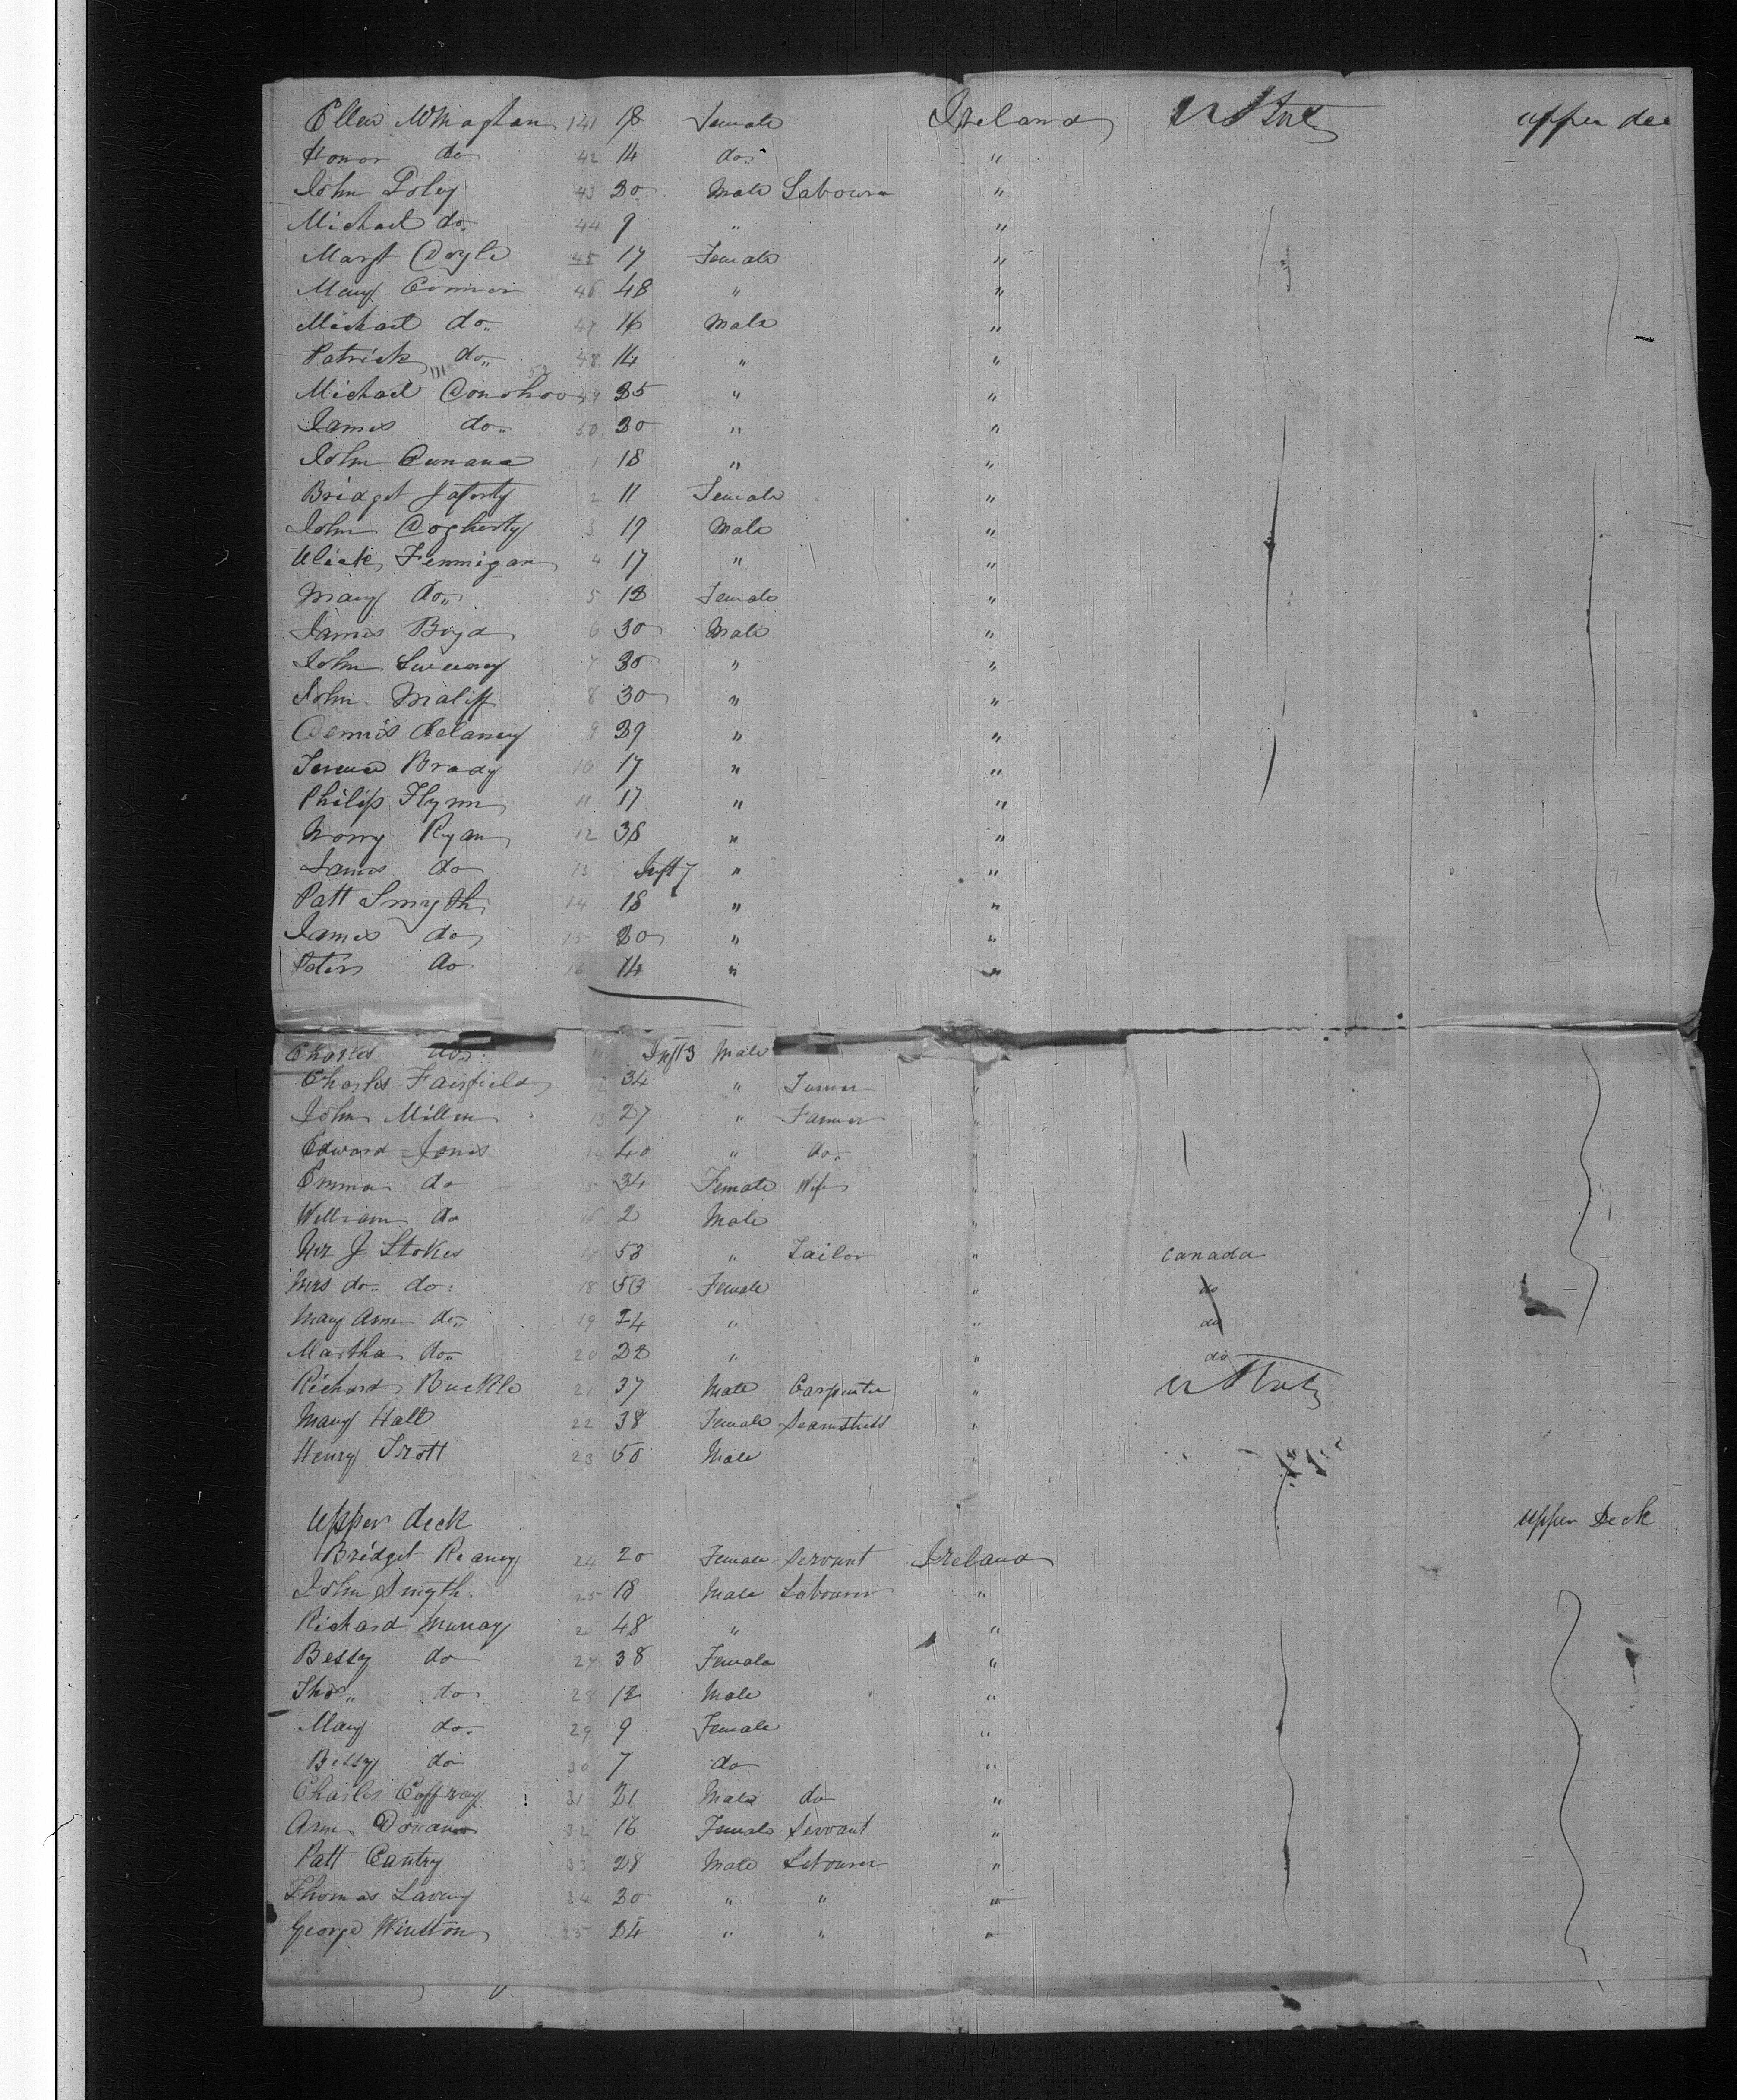 Ellen Monaghan 141 18 Female Ireland U States upper dec
Honor do 42 14 do " 
John Foley 43 20 Male Labourer "
Michael do 44 9 " "
Margt Doyle 45 17 Female "
Mary Connor 46 48 " "
Michael do 47 16 Male "
Patrick do 48 14 " "
Michael Donohoo 49 35 " "
James do 50 30 " "
John Cunana 1 18 " "
Bridget 2 11 Female "
John Dogherty 3 19 Male "
Ulick Finnigan 4 17 " "
Mary do 5 18 Female "
James Boyd 6 30 Male "
John Sweeney 7 30 " "
John Maliff 8 30 " "
Dennis delaney 9 39 " "
Terence Brady 10 17 " "
Philip Flynn 11 17 " "
Norry Ryan 12 38 " "
James do 13 Inft 7 " "
Patt Smyth 14 18 " "
James do 15 20 " "
Peter do 16 14 " "
Charles do 11 Inft 3 Male
Charles Fairfield 12 34 " Turner "
John Millen 13 27 " Farmer "
Edward Jones 14 40 " do "
Emma do 15 34 Female Wife "
William do 16 2 Male "
Mr J Stokes 17 53 " Tailor " Canada
Mrs do do 18 53 Female " do
Mary Ann do 19 24 " " do
Martha do 20 22 " " do
Richard Buckle 21 37 Male Carpenter " U States
Mary Hall 22 38 Female Seamstress "
Henry Trott 23 50 Male "
Upper deck upper Deck
Bridget Reaney 24 20 Female Servant Ireland
John Smyth 25 18 Male Labourer "
Richard Murray 26 48 " "
Bessy do 27 38 Female "
Thos do 28 12 Male "
Mary do 29 9 Female "
Bessy do 30 7 do "
Charles Caffray 31 21 Male do "
Ann Donan 32 16 Female Servant "
Patt Cantry 33 28 Male Labourer "
Thomas Laveny 34 30 " " "
George Winston 35 24 " " "